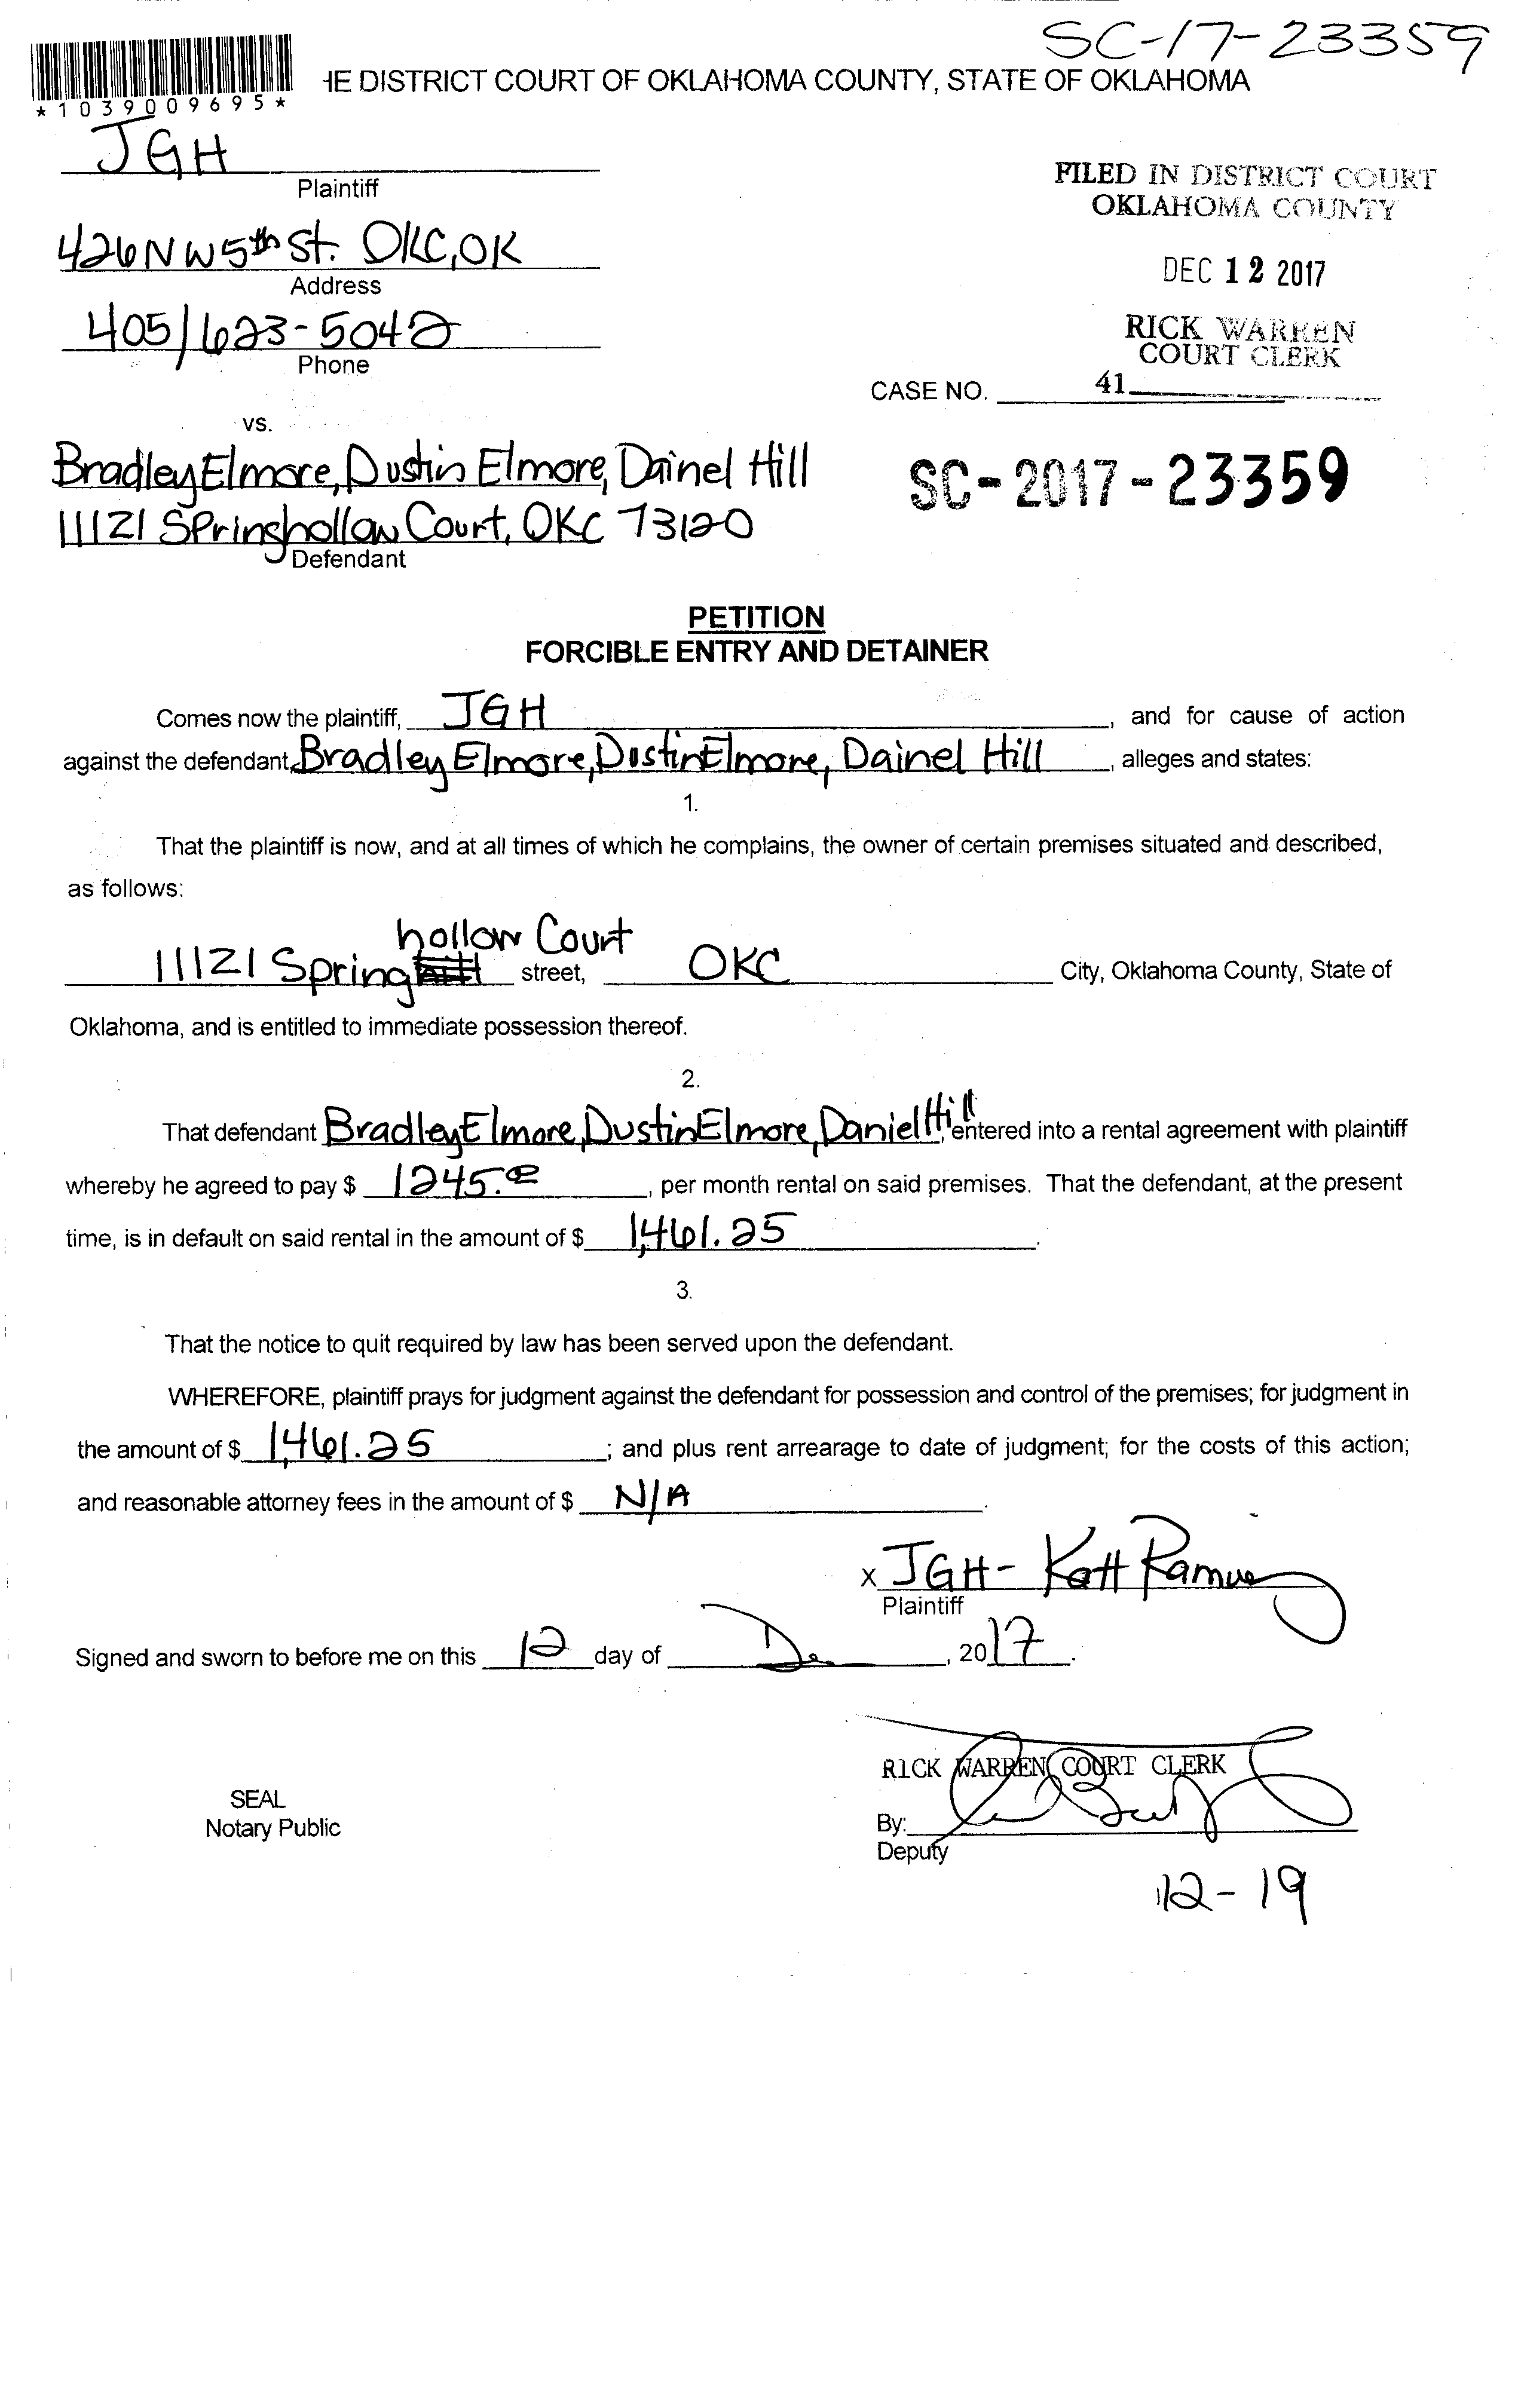 SC-17-23359
HE DISTRICT COURT OF OKLAHOMA COUNTY, STATE OF OKLAHOMA
*1039009695*
JGH
Plaintiff
FILED IN DISTRICT COURT
OKLAHOMA COUNTY
426 NW 5th St. OKC, OK
Address
DEC 12 2017
405/623-5042
Phone
RICK WARREN
COURT CLERK
CASE NO. 41
vs.
Bradley Elmore, Dustin Elmore, Dainel Hill
SC-2017-23359
11121 Springhollow Court, OKC 73120
Defendant
PETITION
FORCIBLE ENTRY AND DETAINER
Comes now the plaintiff, JGH, and for cause of action
against the defendant, Bradley Elmore, Dustin Elmore, Dainel Hill, alleges and states:
1.
That the plaintiff is now, and at all times of which he complains, the owner of certain premises situated and described,
as follows:
11121 Spring hollow Court street, OKC City, Oklahoma County, State of
Oklahoma, and is entitled to immediate possession thereof.
2.
That defendant Bradley Elmore, Dustin Elmore, Daniel Hill, entered into a rental agreement with plaintiff
whereby he agreed to pay $ 1245.00, per month rental on said premises. That the defendant, at the present
time, is in default on said rental in the amount of $ 1,461.25.
3.
That the notice to quit required by law has been served upon the defendant.
WHEREFORE, plaintiff prays for judgment against the defendant for possession and control of the premises; for judgment in
the amount of $ 1,461.25; and plus rent arrearage to date of judgment; for the costs of this action;
and reasonable attorney fees in the amount of $ N/A.
x JGH - Katt
Plaintiff
Signed and sworn to before me on this 12 day of De, 2017.
RICK WARREN COURT CLERK
SEAL
Notary Public
By:
Deputy
12-19